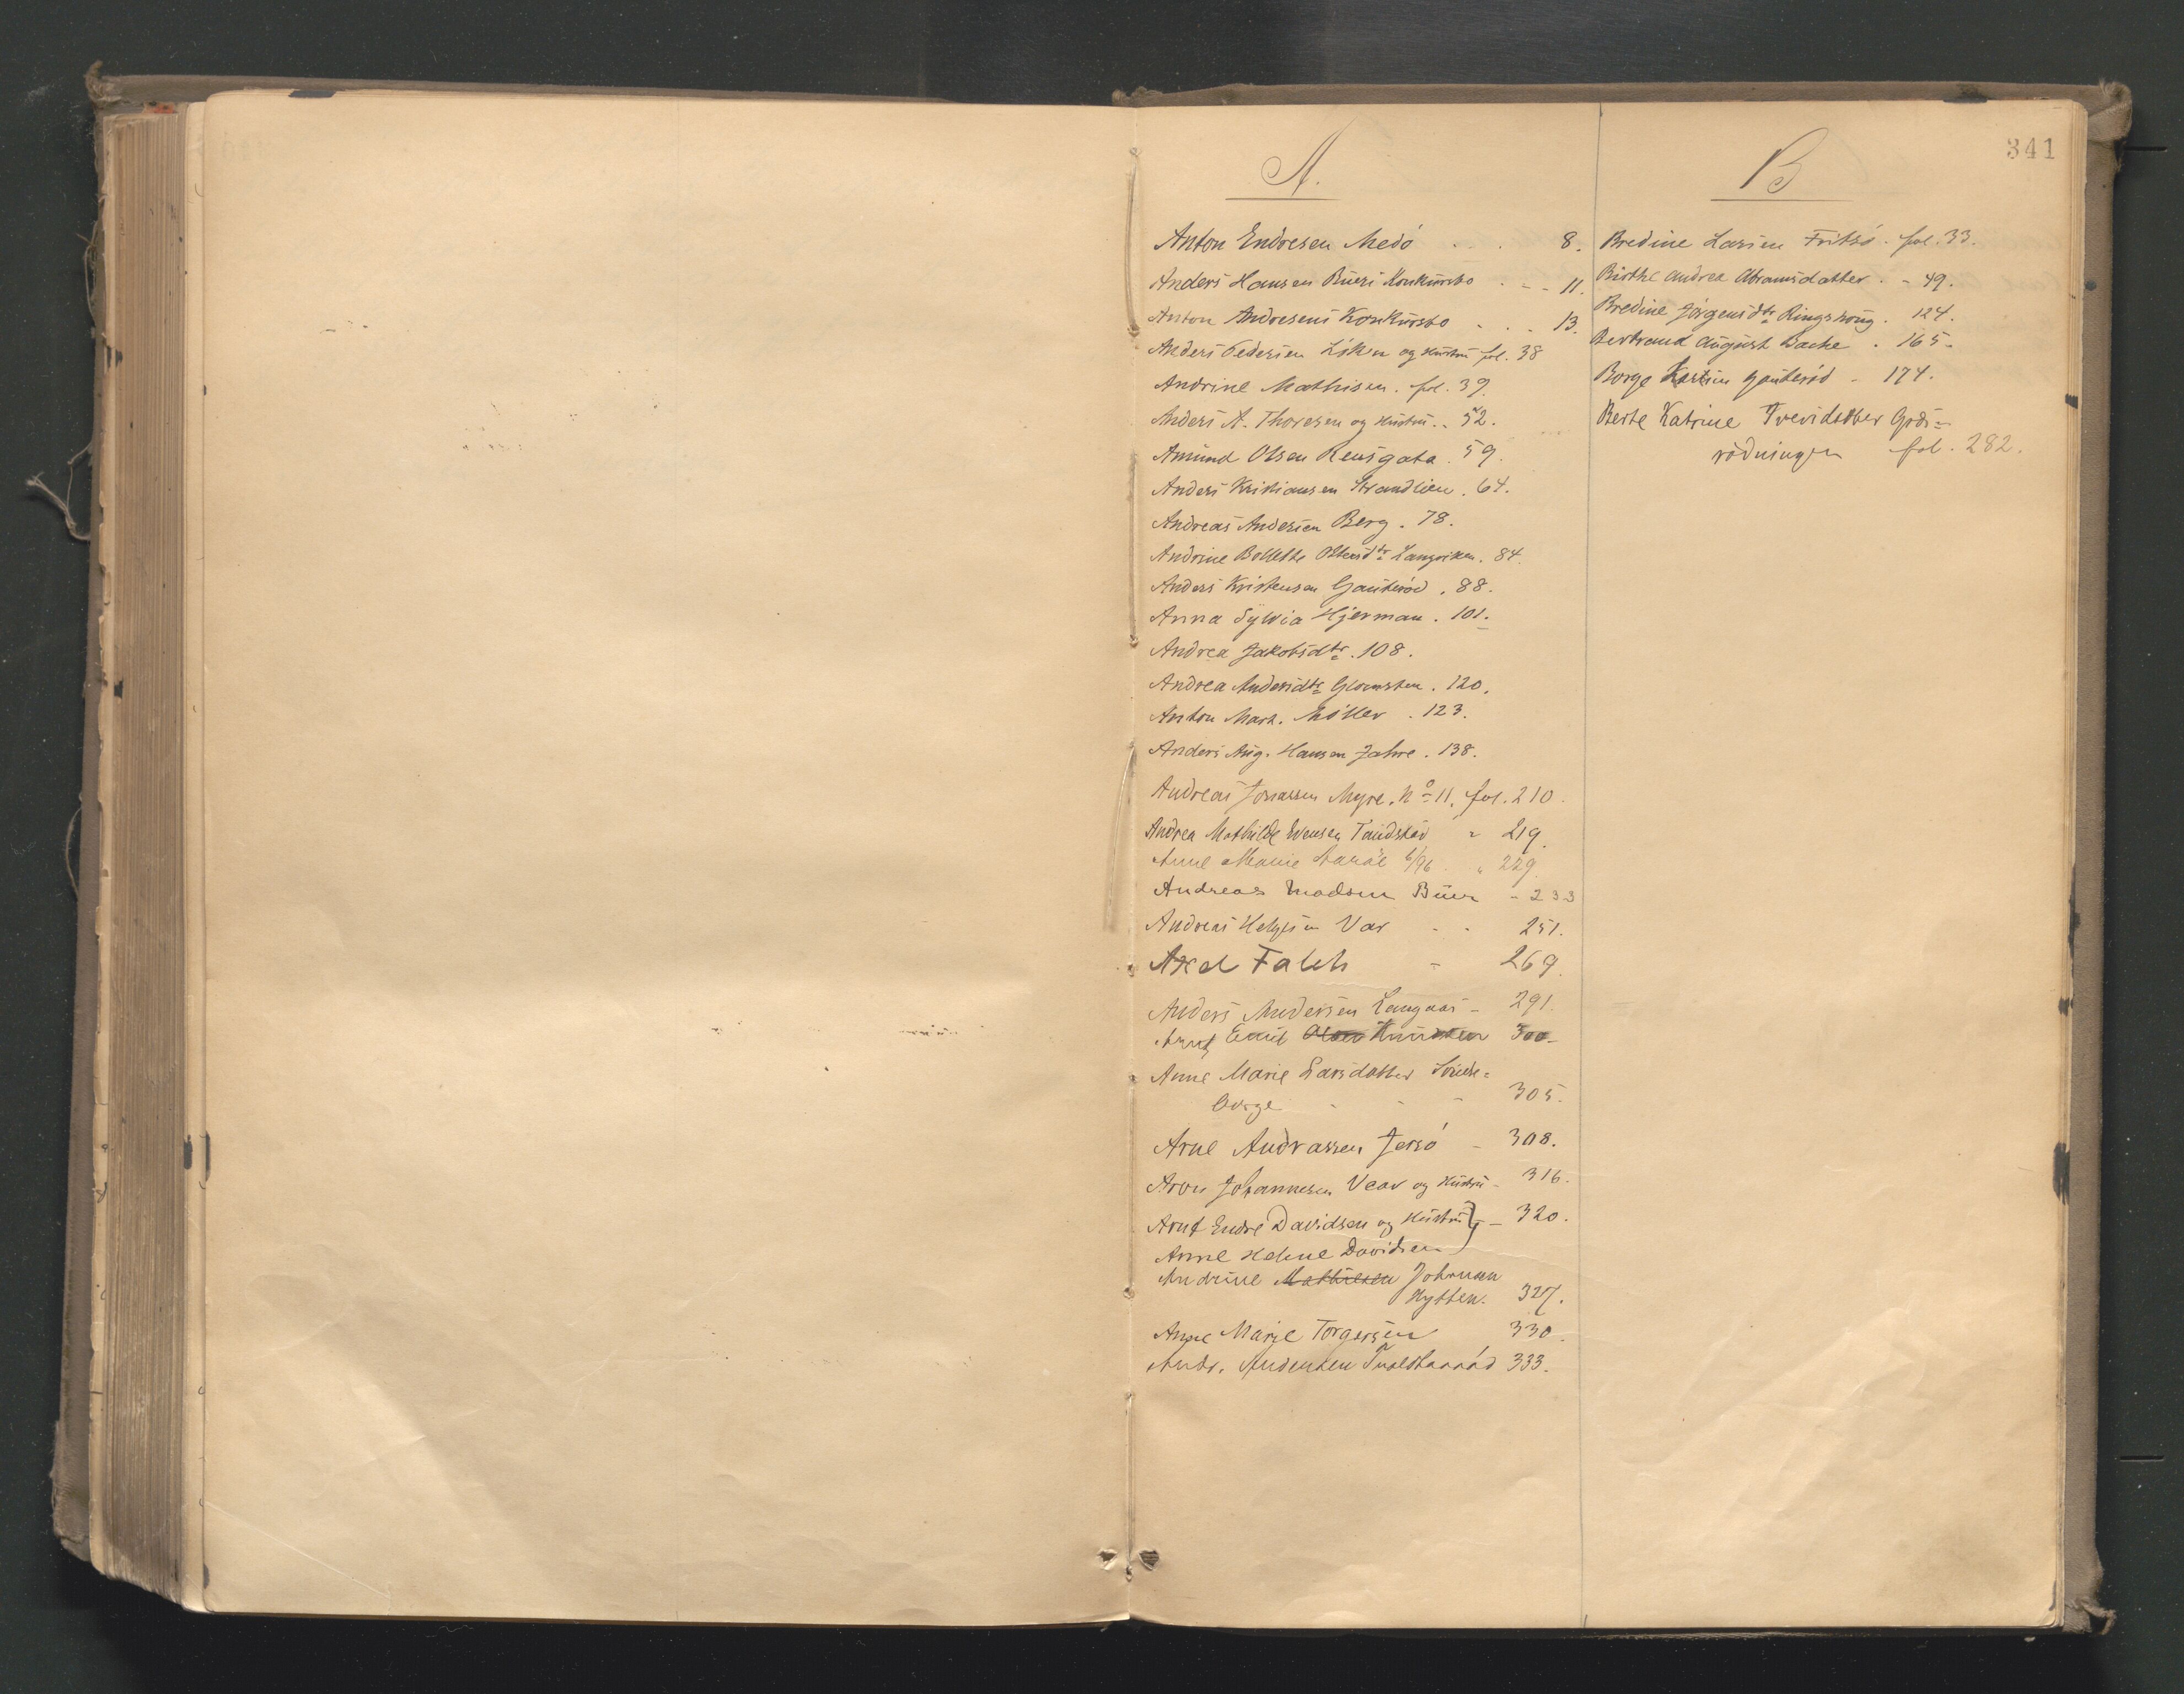 341
A.
Anton Endresen Medö . . . 8.
Anders Hansen Bueri Konkursbo . - - 11.
Anton Andresens Konkursbo - . . 13.
Anders Pedersen Löken og Hustru fol. 38
Andrine Mathisen. fol. 39.
Anders A. Thoresen og Hustru. . 52.
Amund Olsen Rensgata . 59.
Anders Kristiansen Strandlien . 64.
Andreas Andersen Berg . 78.
Andrine Bollette Ottersdtr Langviken . 84.
Anders Kristensen Gauteröd . 88.
Anna Sylvia Hjerman . 101.
Andrea Jakobsdtr . 108.
Andrea Andersdtr Glomsten . 120.
Anton Mart. Möller . 123.
Anders Aug. Hansen Jahre . 138.
Andreas Jonassen Myre. No 11. fol. 210.
Andrea Mathilde Evensen " 219.
Anne Marie 6/96 . " 229.
Andreas Madsen Buer - 233
Andreas Helgesen Var - - 251.
Axel Falch - 269.
Anders Andersen Langaas - 291.
Arnt Emil Olsen Knudsen 300-
Anne Marie Larsdatter
borge - - - 305.
Arne Andrassen Jersö - 308.
Aron Johannesen Veav og Hustru - 316.
Arnt Endre Davidsen og Hustru } - 320.
Anne Helene Davidsen
Andrine Mathiesen Johnsen
Hytten. 327.
Anne Marie Torgersen 330.
Andr. Andersen 333.
B
Bredine Larsen Fritsö . fol. 33.
Birthe Andrea Abramsdatter . - 49.
Bredine Jörgensdtr Ringshoug . 124.
Bertrand August Bache . 165-
Borge Gauteröd - 174.
Berte Katrine
rödningen fol. 282.